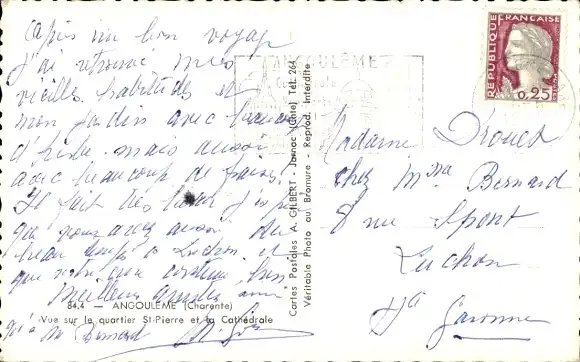 après un bon voyage
j'ai retrouvé mes
vieilles habitudes et
mon jardin avec beaucoup
d' mais aussi
avec beaucoup de
Il fait très j'espère
que vous avez aussi du
beau temps à Luchon et
que votre cure continue bien
Meilleures amitiés ainsi
qu'à M. Bernard
84.4 — ANGOULÊME (Charente)
Vue sur le quartier St-Pierre et la Cathédrale
Cartes Postales A. GILBERT - Jarnac (Chte) Tél. 264
Véritable Photo au Bromure - Reprod. Interdite
ANGOULÊME
REPUBLIQUE FRANÇAISE
0,25
Madame Drouet
chez Mme Bernard
8 rue Spont
Luchon
Hte Garonne